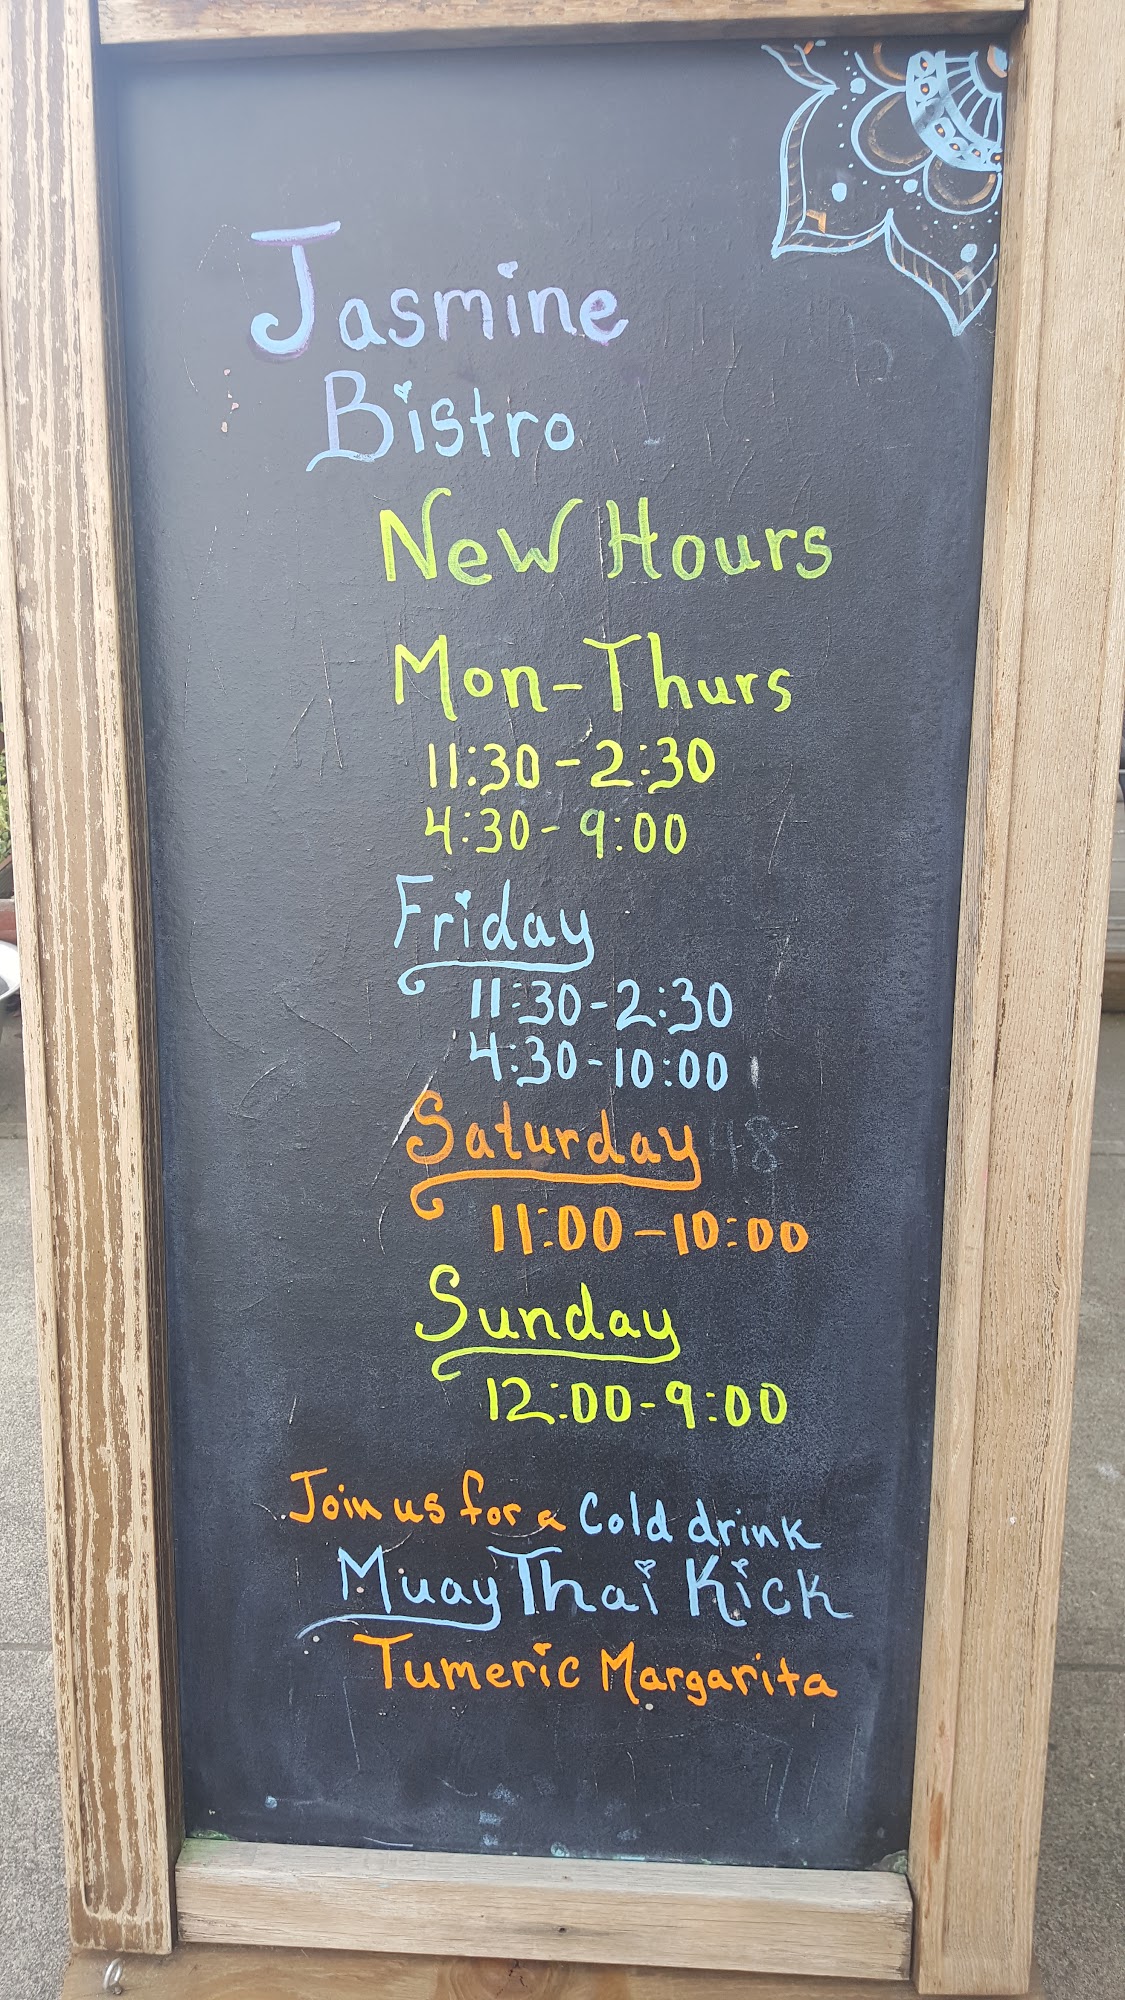 Jasmine
Bistro
New Hours
Mon-Thurs
11:30-2:30
4:30-9:00
Friday
11:30-2:30
4:30-10:00
Saturday
11:00-10:00
Sunday
12:00-9:00
Join us for a Cold drink
Muay Thai Kick
Tumeric Margarita